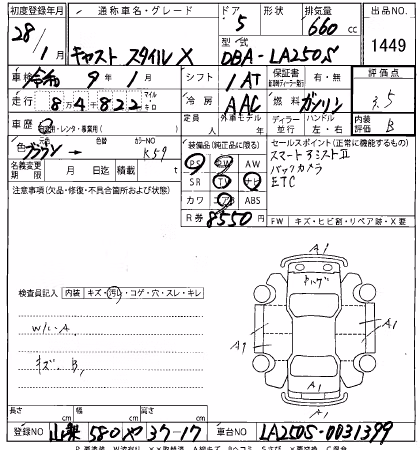 初度登録年月 通称車名・グレード ドア 形状 排気量 出品NO.
28/1月 キャスト スタイル X 5 660 cc 1449
型式 DBA-LA250S
車検 令和 9年 1月 シフト 1AT 保証書 有・無 評価点
走行 8万4千822 マイル キロ 冷房 AAC 燃料 ガソリン 3.5
車歴 自家用・レンタ・事業用( ) 定員 人 外車モデル 年 ディーラー 並行 ハンドル 左・右 内装 B
色 ブラウン → 色替 カラーNO K59 装備品(純正品に限る) セールスポイント(正常に機能するもの)
PS PW AW スマートアシストⅡ
名義変更期限 月 日迄 積載 t SR TV ナビ バックカメラ
注意事項(欠品・修復・不具合箇所および状態) カワ エアB ABS ETC
R券 8550円 FW キズ・ヒビ割・リペア跡・X要
検査員記入 内装 キズ・汚れ・コゲ・穴・スレ・キレ
W/C.A
キズ.B,
A1
A1
A1
A1
A1
長さ cm 幅 cm 高さ cm
登録NO 山梨 580 や 37-17 車台NO LA250S-0031399